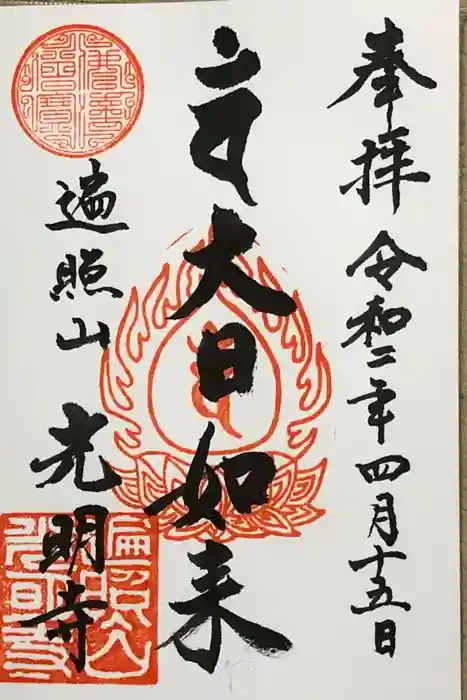 奉拝 令和二年四月十五日
大日如来
遍照山
光明寺